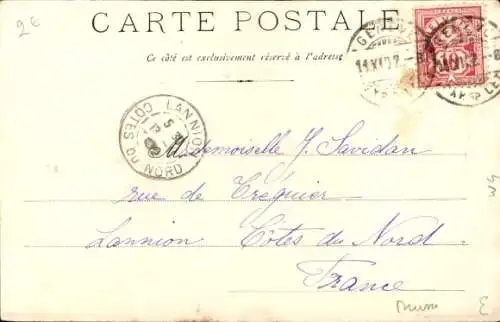 2€
CARTE POSTALE
Ce côté est exclusivement réservé à l'adresse
GENÈVE
11.XI.02.-8
LANNION
CÔTES DU NORD
Mademoiselle J. Savidan
rue de Tréguier
Lannion Côtes du Nord
France